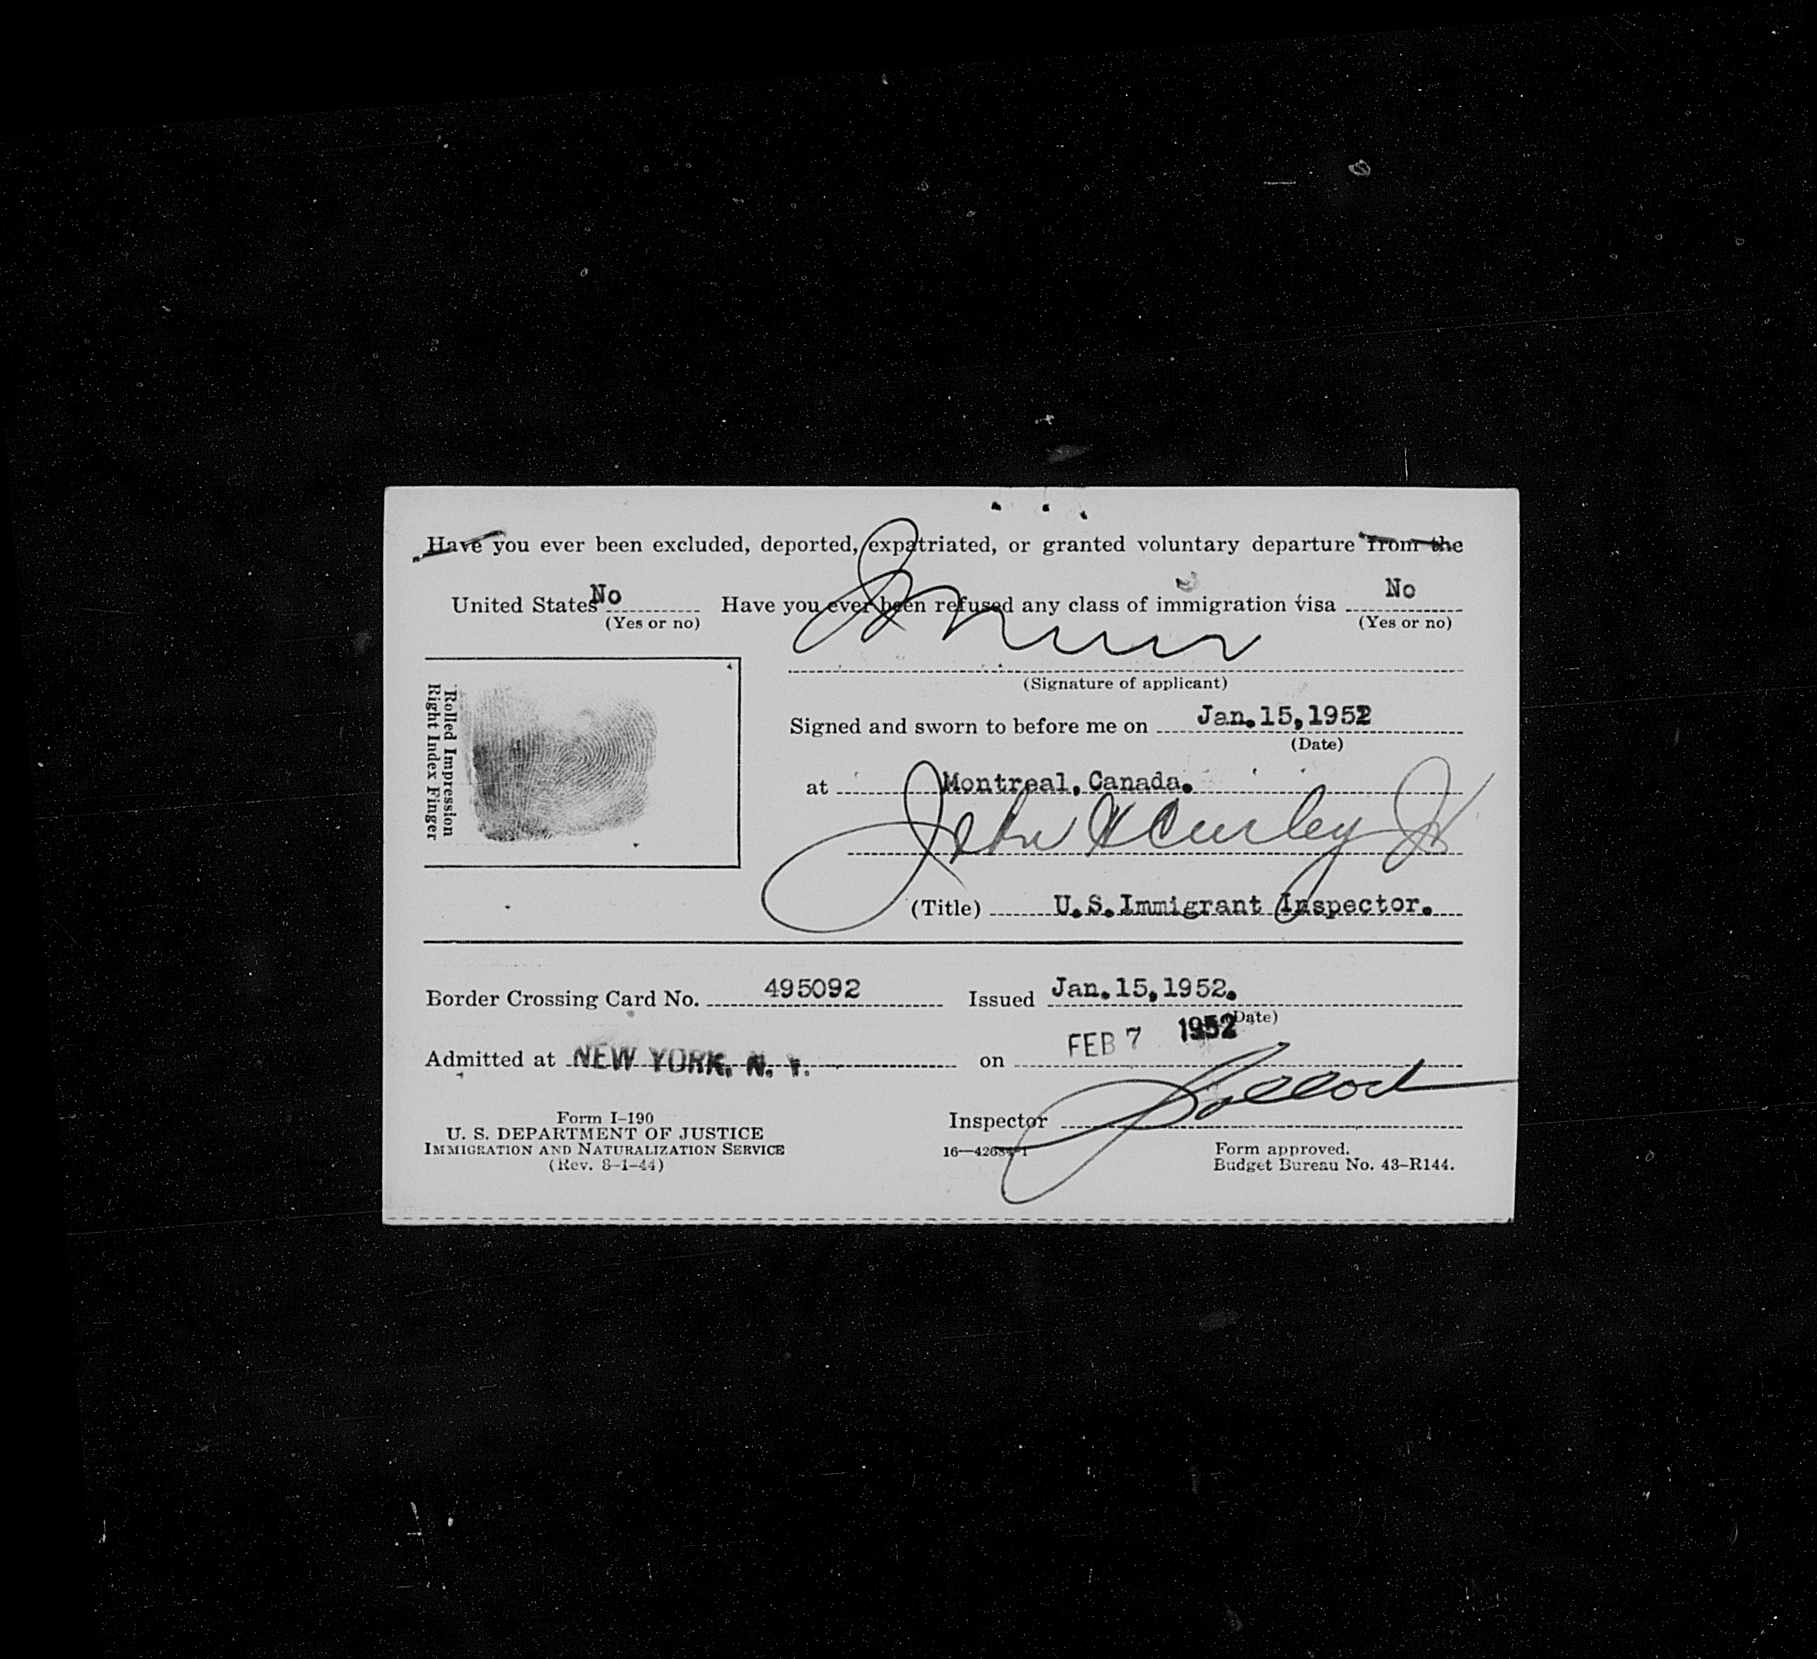 Have you ever been excluded, deported, expatriated, or granted voluntary departure from the
United States No Have you ever been refused any class of immigration visa No
(Yes or no) (Yes or no)
Rolled Impression
Right Index Finger
(Signature of applicant)
Signed and sworn to before me on Jan.15,1952
(Date)
at Montreal, Canada.
John Curley Jr
(Title) U.S.Immigrant Inspector.
Border Crossing Card No. 495092 Issued Jan.15,1952.
(Date)
Admitted at NEW YORK, N. Y. on FEB 7 1952
Inspector
Form I-190
U. S. DEPARTMENT OF JUSTICE
IMMIGRATION AND NATURALIZATION SERVICE
(Rev. 8-1-44)
Form approved.
Budget Bureau No. 43-R144.